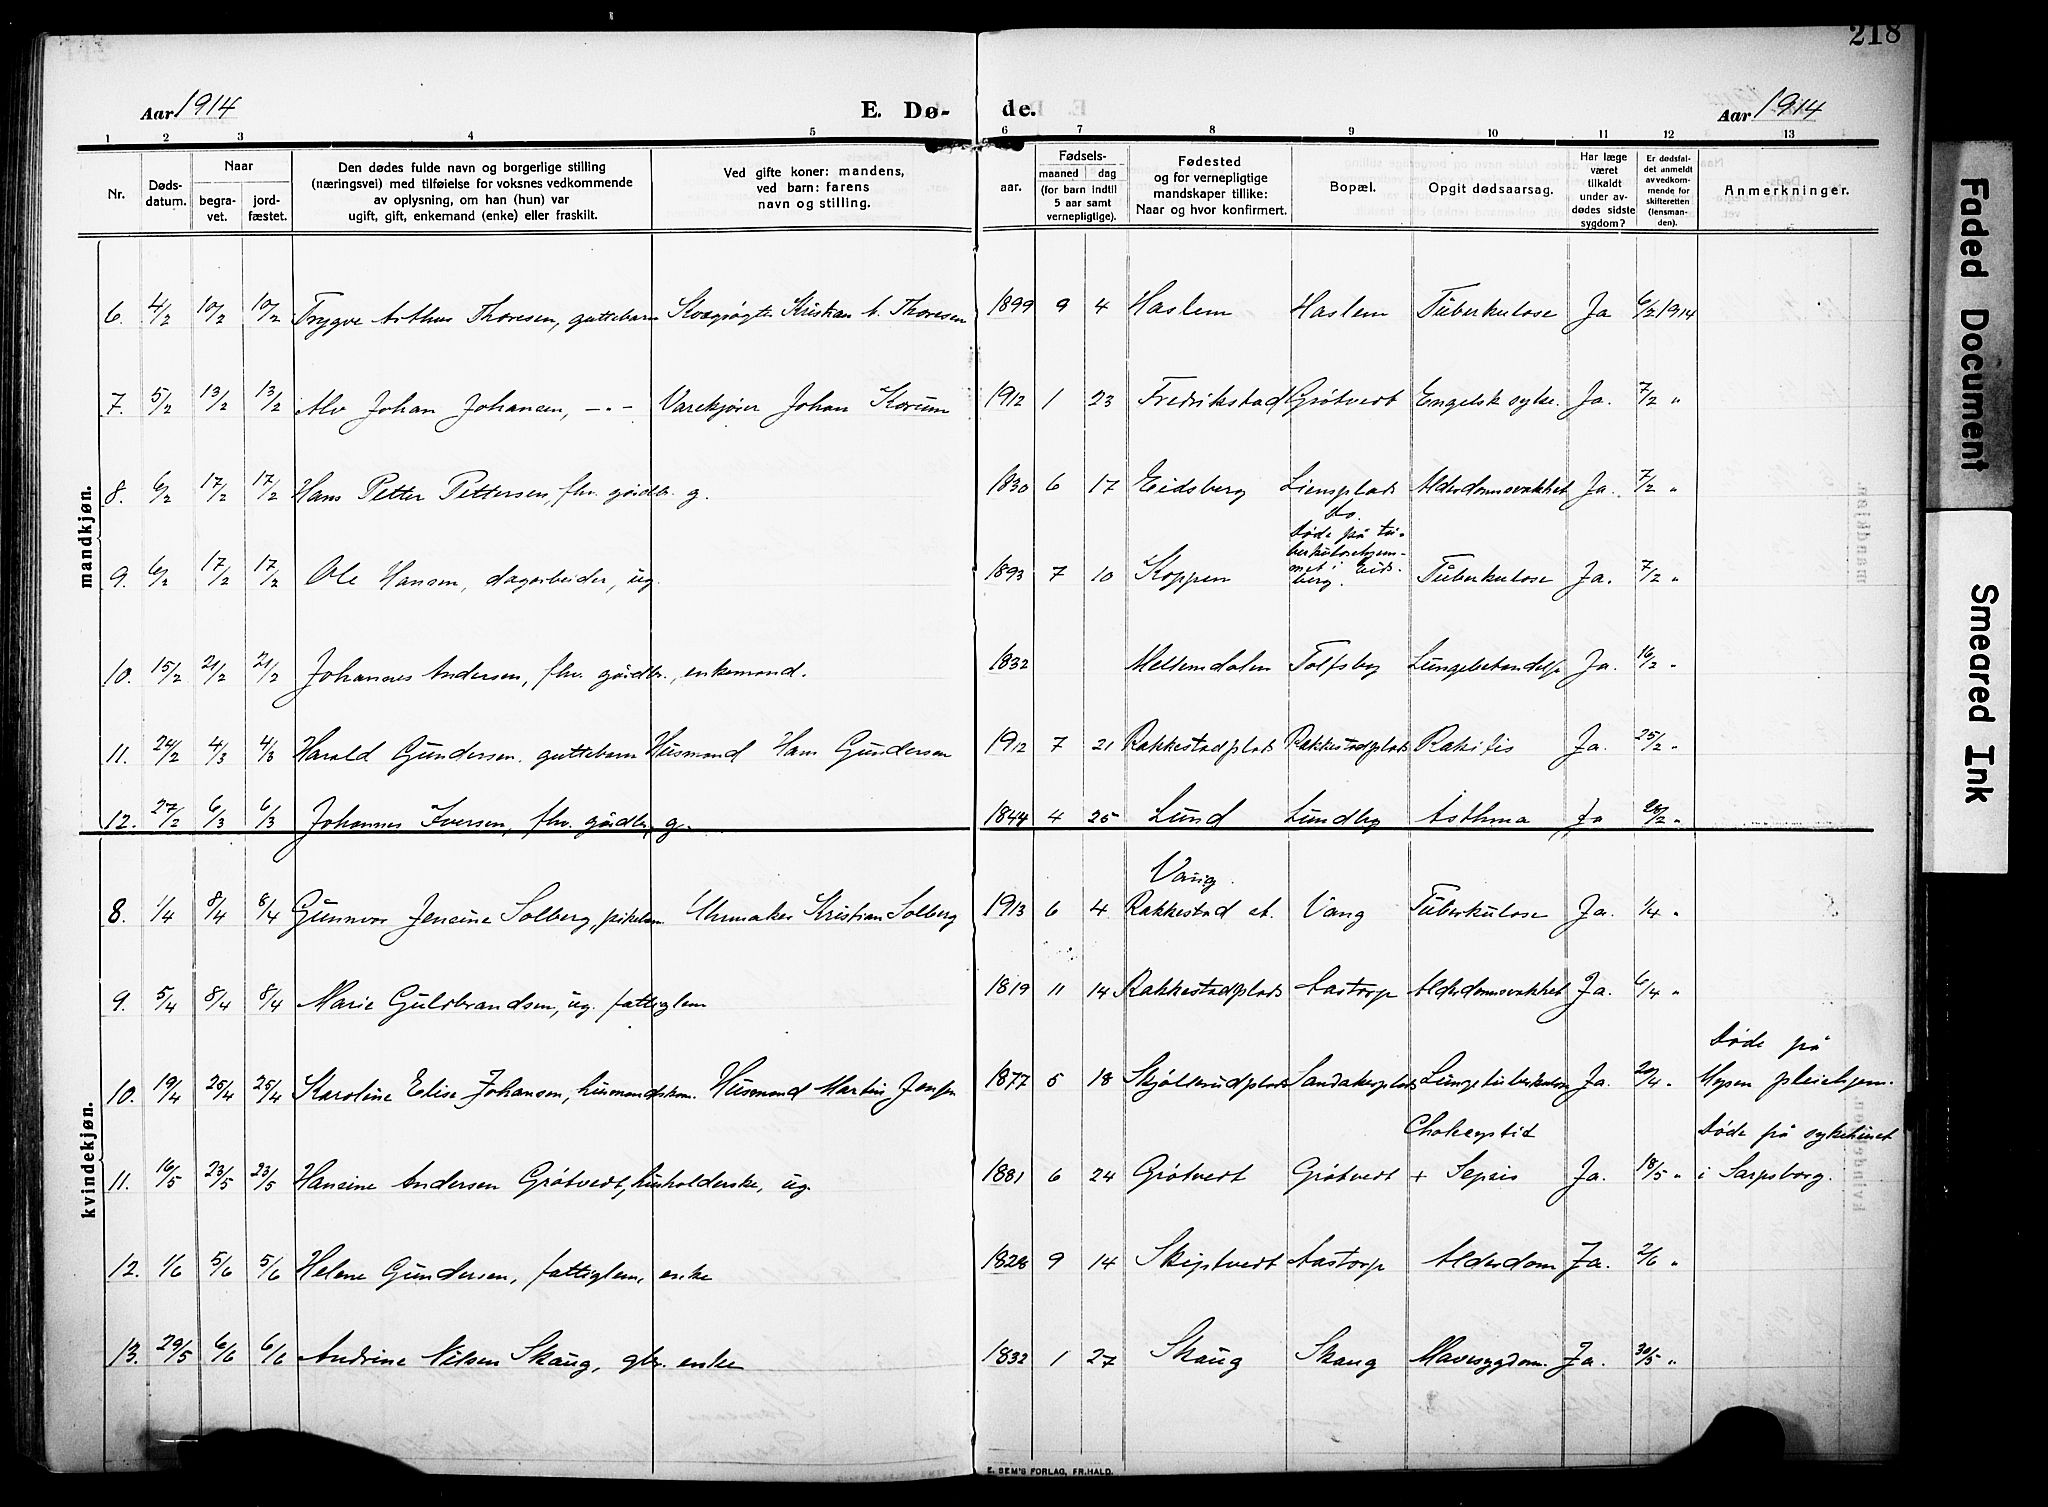 218
Aar 1914
E. Dø- de.
Aar 1914
1 2 3 4 5 6 7 8 9 10 11 12 13
Nr.
Døds-
datum.
Naar
begra-
vet.
jord-
fæstet.
Den dødes fulde navn og borgerlige stilling
(næringsvei) med tilføielse for voksnes vedkommende
av oplysning, om han (hun) var
ugift, gift, enkemand (enke) eller fraskilt.
Ved gifte koner: mandens,
ved barn: farens
navn og stilling.
Fødsels-
aar. maaned dag
(for barn indtil
5 aar samt
vernepligtige).
Fødested
og for vernepligtige
mandskaper tillike:
Naar og hvor konfirmert.
Bopæl.
Opgit dødsaarsag.
Har læge
været
tilkaldt
under av-
dødes sidste
sygdom?
Er dødsfal-
det anmeldt
av vedkom-
mende for
skifteretten
(lensman-
den).
Anmerkninger.
mandkjøn.
6. 4/2 10/2 10/2 Trygve Arthur Thoresen, guttebarn Kristian A. Thoresen 1899 9 4 Haslem Haslem Tuberkulose Ja 6/2 1914
7. 5/2 13/2 13/2 Alv Johan Johansen, -"- Varekjører Johan Korum 1912 1 23 Fredrikstad Grøtvedt Engelsk syke. Ja. 7/2 "
8. 6/2 17/2 17/2 Hans Petter Pettersen, fhv. gårdbr. g. 1830 6 17 Eidsberg Liensplads Alderdomssvakhet Ja. 7/2 "
do.
Døde på tu-
berkulosehjem-
met i Eids-
berg.
9. 6/2 17/2 17/2 Ole Hansen, dagarbeider, ug. 1893 7 10 Koppen Tuberkulose Ja. 7/2 "
10. 15/2 21/2 21/2 Johannes Andersen, fhv. gårdbr., enkemand. 1832 Mellemdalen Tolfsby Lungebetændelse Ja. 16/2 "
11. 24/2 4/3 4/3 Harald Gundersen, guttebarn Husmand Hans Gundersen 1912 7 21 Rakkestadplads Rakkestadplads Rakitis Ja. 25/2 "
12. 27/2 6/3 6/3 Johannes Iversen, fhv. gårdbr., g. 1844 4 25 Lund Lundby Asthma Ja 28/2 "
kvindekjøn.
Vang.
8. 1/4 8/4 8/4 Gunnvor Jensine Solberg, pikebarn Uhrmaker Kristian Solberg 1913 6 4 Rakkestad st. Vang Tuberkulose Ja. 1/4 "
9. 5/4 8/4 8/4 Marie Gulbrandsen, ug. fattiglem 1819 11 14 Rakkestadplads Aastorp Alderdomssvakhet Ja. 6/4 "
Døde på
10. 19/4 25/4 25/4 Karoline Elise Johansen, husmandskon. Husmand Martin Jensen 1877 5 18 Skjølerudplads Sandakerplads Lungetuberkulose Ja. 20/4 " Mysen pleiehjem.
Døde på sykehuset
11. 16/5 23/5 23/5 Hansine Andersen Grøtvedt, husholderske, ug. 1881 6 24 Grøtvedt Grøtvedt + Sepsis Ja. 18/5 " i Sarpsborg.
12. 1/6 5/6 5/6 Helene Gundersen, fattiglem, enke 1828 9 14 Skiptvedt Aastorp Alderdom Ja. 2/6 "
13. 29/5 6/6 6/6 Andrine Nilsen Skaug, gbr. enke 1832 1 27 Skaug Skaug Mavesygdom. Ja. 30/5 "
E. SEM'S FORLAG, FR.HALD.
Faded Document
Smeared Ink